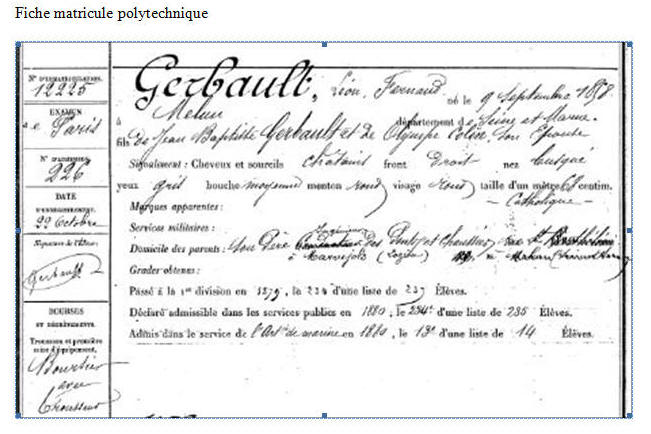 Fiche matricule polytechnique
N° D'IMMATRICULATION.
12225
EXAMEN
Paris
N° D'ADMISSION
226
DATE
D'ENREGISTREMENT.
22 Octobre
Signature de l'Élève:
Gerbault
BOURSES
ET DÉGRÈVEMENTS.
Trousseau et première
mise d'équipement.
Boursier
avec
trousseau
Gerbault, Léon, Fernand né le 9 Septembre 1858
à Melun département de Seine et Marne.
fils de Jean Baptiste Gerbault et de Olympe Colin, son épouse
Signalement : Cheveux et sourcils chatains front Droit nez busqué
yeux gris bouche moyenne menton rond visage rond taille d'un mètre 68 centim.
Marques apparentes : - Catholique -
Services militaires :
Domicile des parents : Son Père des Ponts et Chaussées, rue St
à Marvejols (Lozère)
Grades obtenus :
Passé à la 1re division en 1879, le 234 d'une liste de 237 Élèves.
Déclaré admissible dans les services publics en 1880, le 234e d'une liste de 235 Élèves.
Admis dans le service de l'Artie de marine en 1880, le 13e d'une liste de 14 Élèves.